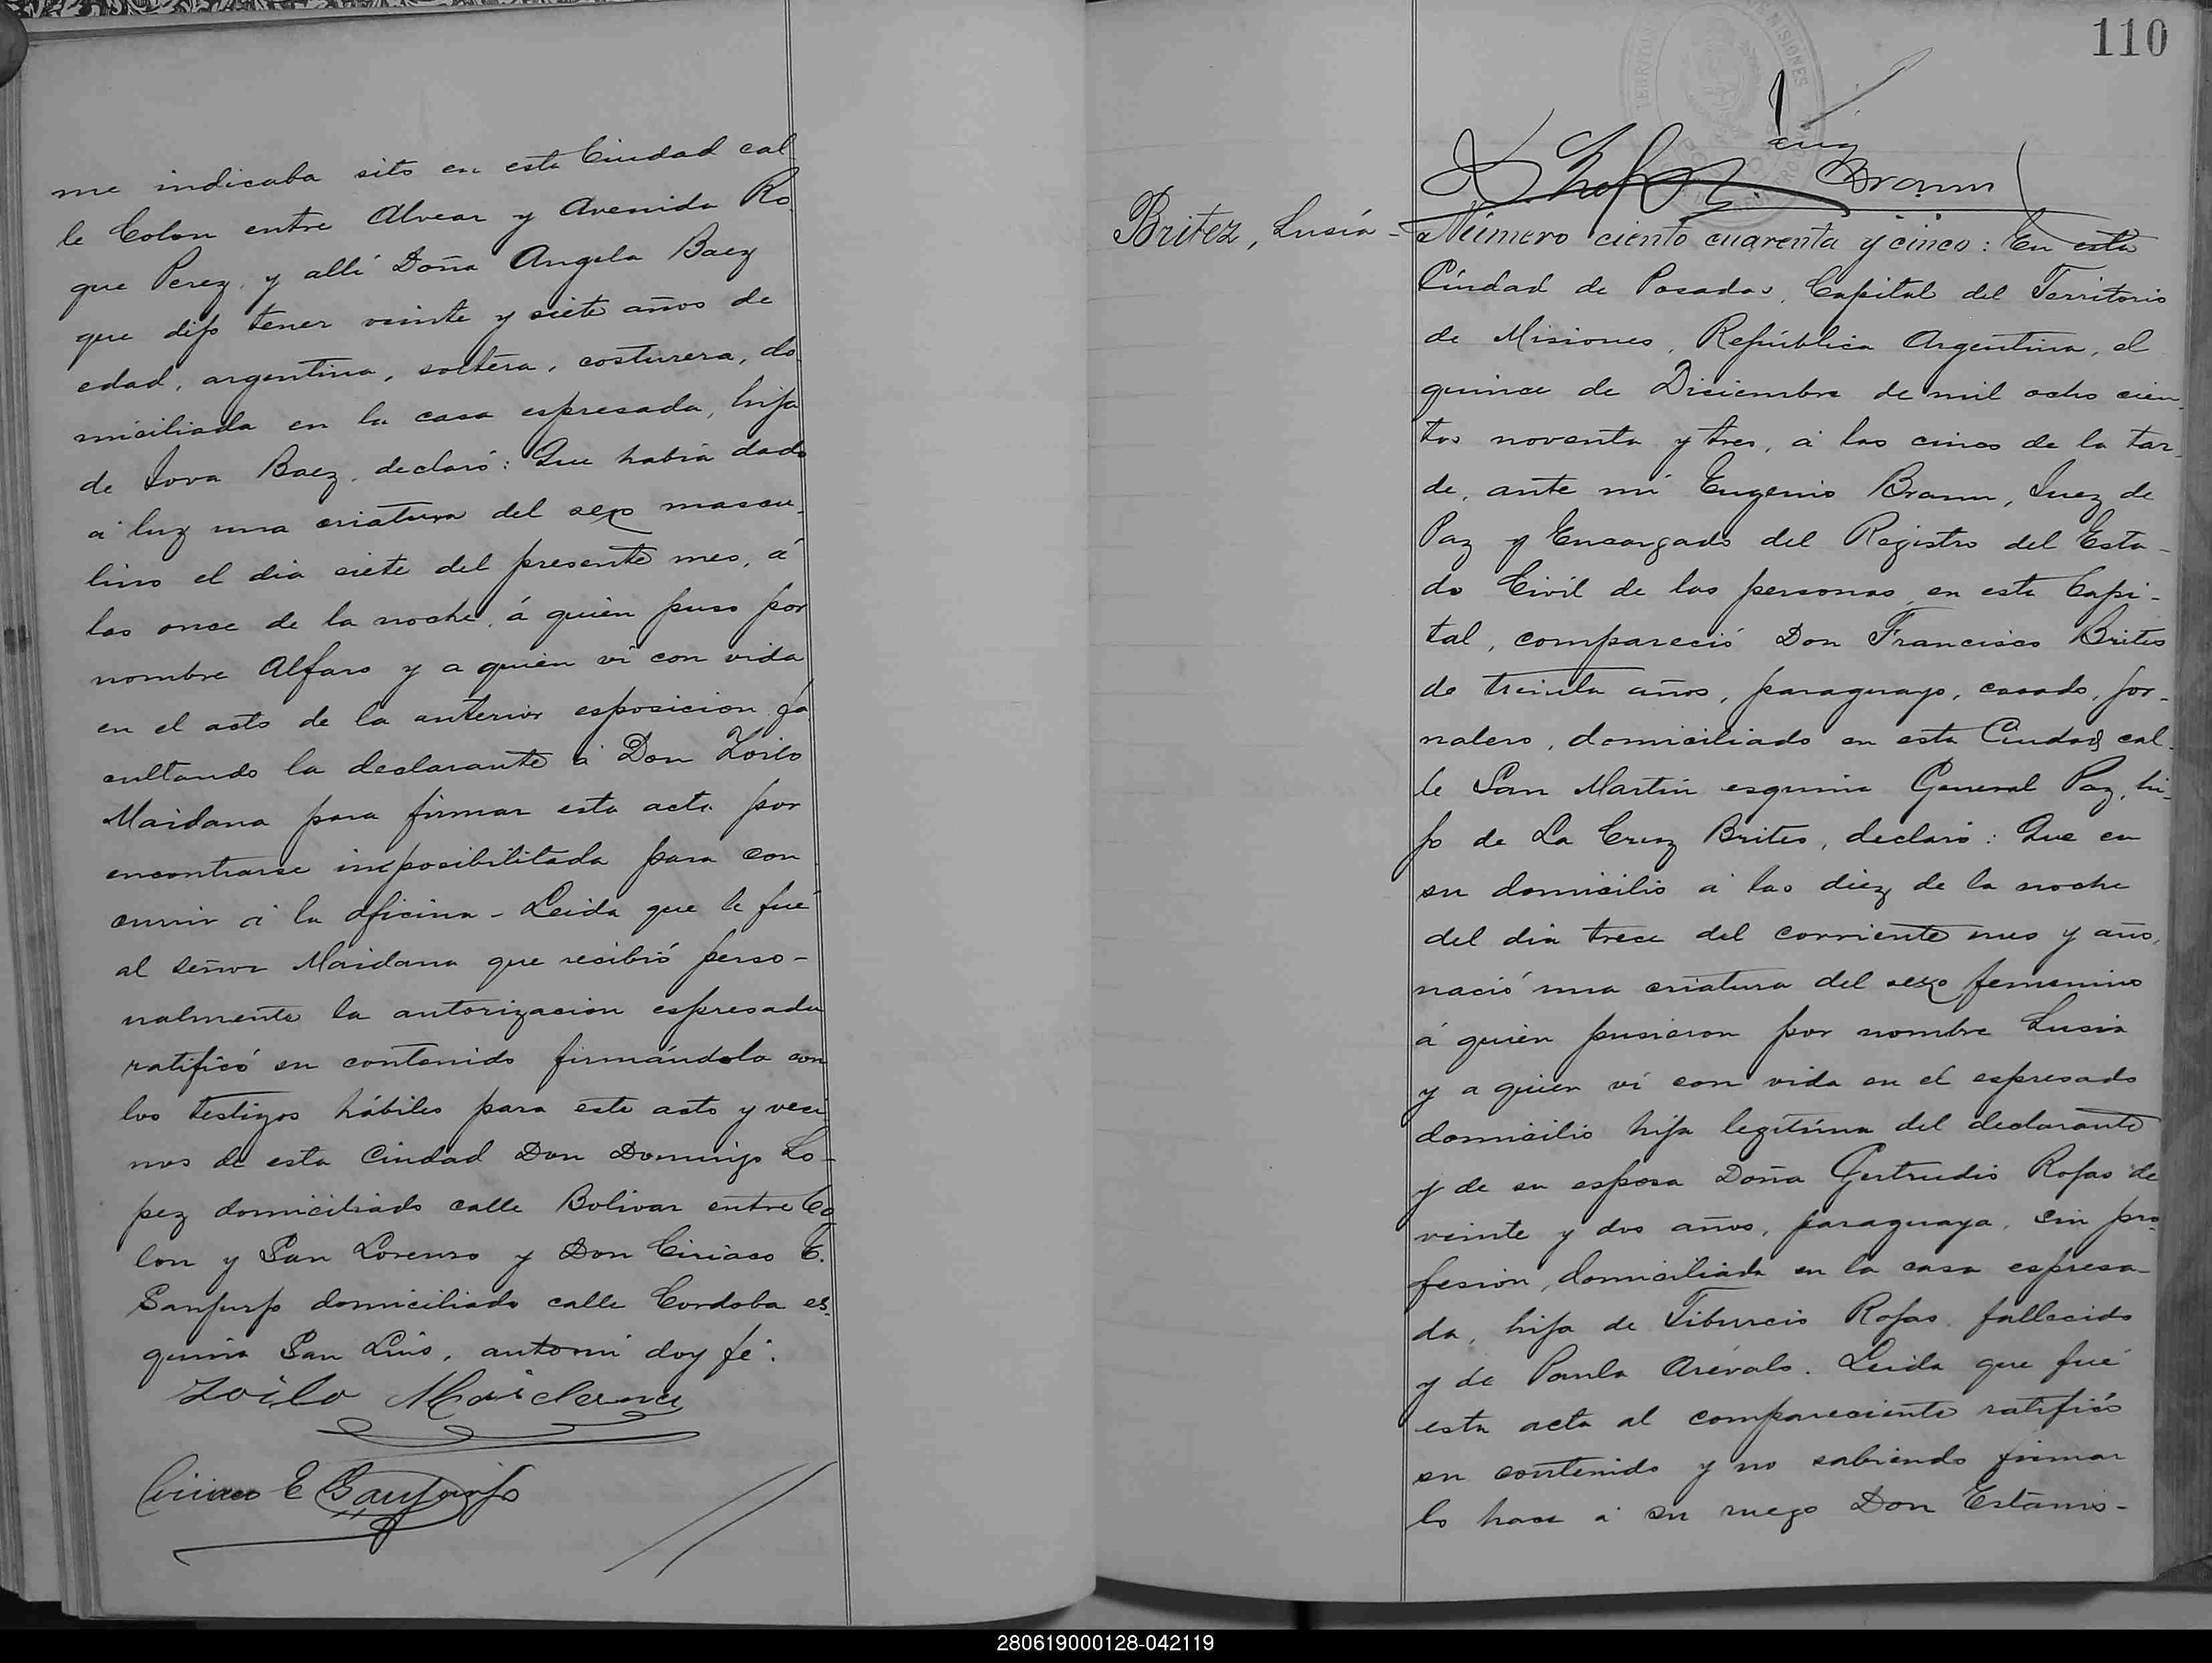 me indicaba sito en esta Ciudad cal
le Colon entre Alvear y Avenida Ro
que Perez, y allí Doña Angela Baez
que dijo tener veinte y siete años de
edad, argentina, soltera, costurera, do
miciliada en la casa espresada, hija
de Jova Baez, declaró: Que habia dado
á luz una criatura del sexo mascu-
lino el dia siete del presente mes, á
las once de la noche, á quien puso por
nombre Alfaro y a quien ví con vida
en el acto de la anterior esposicion fa
cultando la declarante á Don Zoilo
Maidana para firmar esta acta por
encontrarse imposibilitada para con
currir á la oficina - Leida que le fué
al Señor Maidana que recibió perso-
nalmente la autorizacion espresada
ratificó su contenido firmándola con
los testigos hábiles para este acto y veci
nos de esta Ciudad Don Domingo Lo-
pez domiciliado calle Bolivar entre Co
lon y San Lorenso y Don Ciriaco E.
Sanjurjo domiciliado calle Cordoba es-
quina San Luis, ante mi doy fé.
Zoilo Maidana
Ciriaco E Sanjurjo
110
TERRITORIO MISIONES
Eug
Braun
Britez, Lusía -
Número ciento cuarenta y cinco: En esta
Ciudad de Posadas, Capital del Territorio
de Misiones, República Argentina, el
quince de Diciembre de mil ocho cien-
tos noventa y tres, á las cinco de la tar-
de, ante mí Eugenio Braun, Juez de
Paz y Encargado del Registro del Esta-
do Civil de las personas en esta Capi-
tal, compareció Don Francisco Brites
de treinta años, paraguayo, casado, jor-
nalero, domiciliado en esta Ciudad, cal-
le San Martin esquina General Paz, hi-
jo de La Cruz Brites, declaró: Que en
su domicilio á las diez de la noche
del dia trece del corriente mes y año,
nació una criatura del sexo femenino
á quien pusieron por nombre Lusia
y a quien ví con vida en el espresado
domicilio hija legítima del declarante
y de su esposa Doña Gertrudis Rojas de
veinte y dos años, paraguaya, sin pro-
fesion, domiciliada en la casa espresa-
da, hija de Tiburcio Rojas fallecido
y de Paula Arévalo. Leida que fué
esta acta al compareciente ratificó
su contenido y no sabiendo firmar
lo hace á su ruego Don Estanis-
280619000128-042119